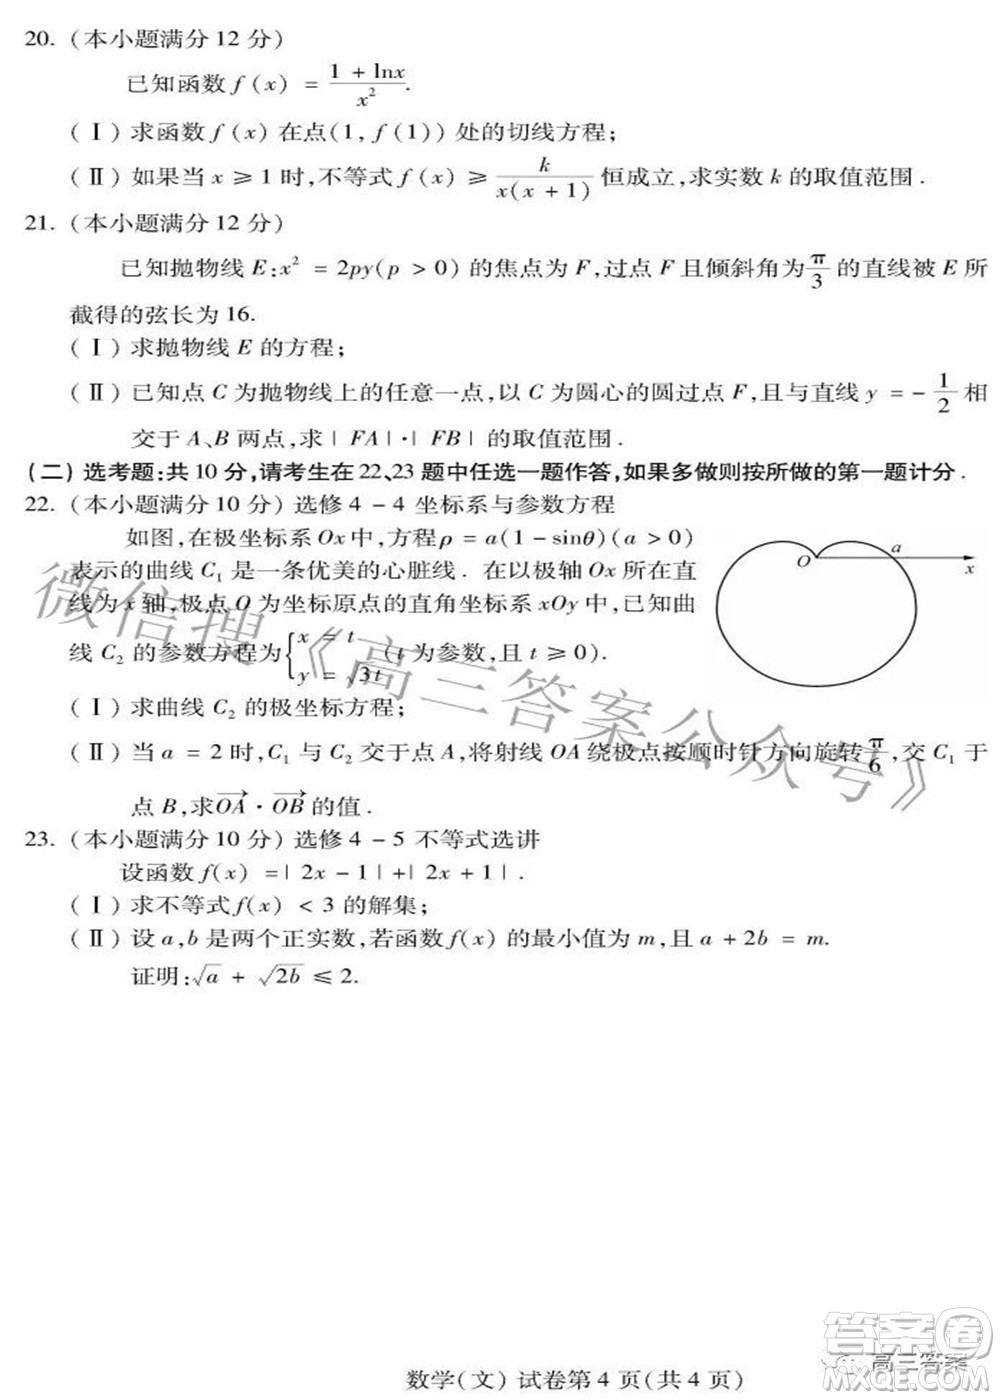 20. (本小题满分 12 分)
已知函数 f(x) = (1 + lnx)/x².
(Ⅰ) 求函数 f(x) 在点(1, f(1)) 处的切线方程;
(Ⅱ) 如果当 x ≥ 1 时,不等式 f(x) ≥ k/(x(x + 1)) 恒成立,求实数 k 的取值范围.
21. (本小题满分 12 分)
已知抛物线 E:x² = 2py(p > 0) 的焦点为 F,过点 F 且倾斜角为 π/3 的直线被 E 所
截得的弦长为 16.
(Ⅰ) 求抛物线 E 的方程;
(Ⅱ) 已知点 C 为抛物线上的任意一点,以 C 为圆心的圆过点 F,且与直线 y = - 1/2 相
交于 A、B 两点,求 | FA | · | FB | 的取值范围.
(二) 选考题:共 10 分,请考生在 22、23 题中任选一题作答,如果多做则按所做的第一题计分.
22. (本小题满分 10 分) 选修 4 - 4 坐标系与参数方程
如图,在极坐标系 Ox 中,方程 ρ = a(1 - sinθ)(a > 0)
表示的曲线 C₁ 是一条优美的心脏线. 在以极轴 Ox 所在直
线为 x 轴,极点 O 为坐标原点的直角坐标系 xOy 中,已知曲
线 C₂ 的参数方程为 { x = t, y = √3t (t 为参数,且 t ≥ 0).
(Ⅰ) 求曲线 C₂ 的极坐标方程;
(Ⅱ) 当 a = 2 时,C₁ 与 C₂ 交于点 A,将射线 OA 绕极点按顺时针方向旋转 π/6,交 C₁ 于
点 B,求 OA · OB 的值.
O a x
23. (本小题满分 10 分) 选修 4 - 5 不等式选讲
设函数 f(x) =| 2x - 1 | +| 2x + 1 |.
(Ⅰ) 求不等式 f(x) < 3 的解集;
(Ⅱ) 设 a,b 是两个正实数,若函数 f(x) 的最小值为 m,且 a + 2b = m.
证明:√a + √2b ≤ 2.
数学(文) 试卷第 4 页(共 4 页)
微信搜《高三答案公众号》
答案卷
高三答案